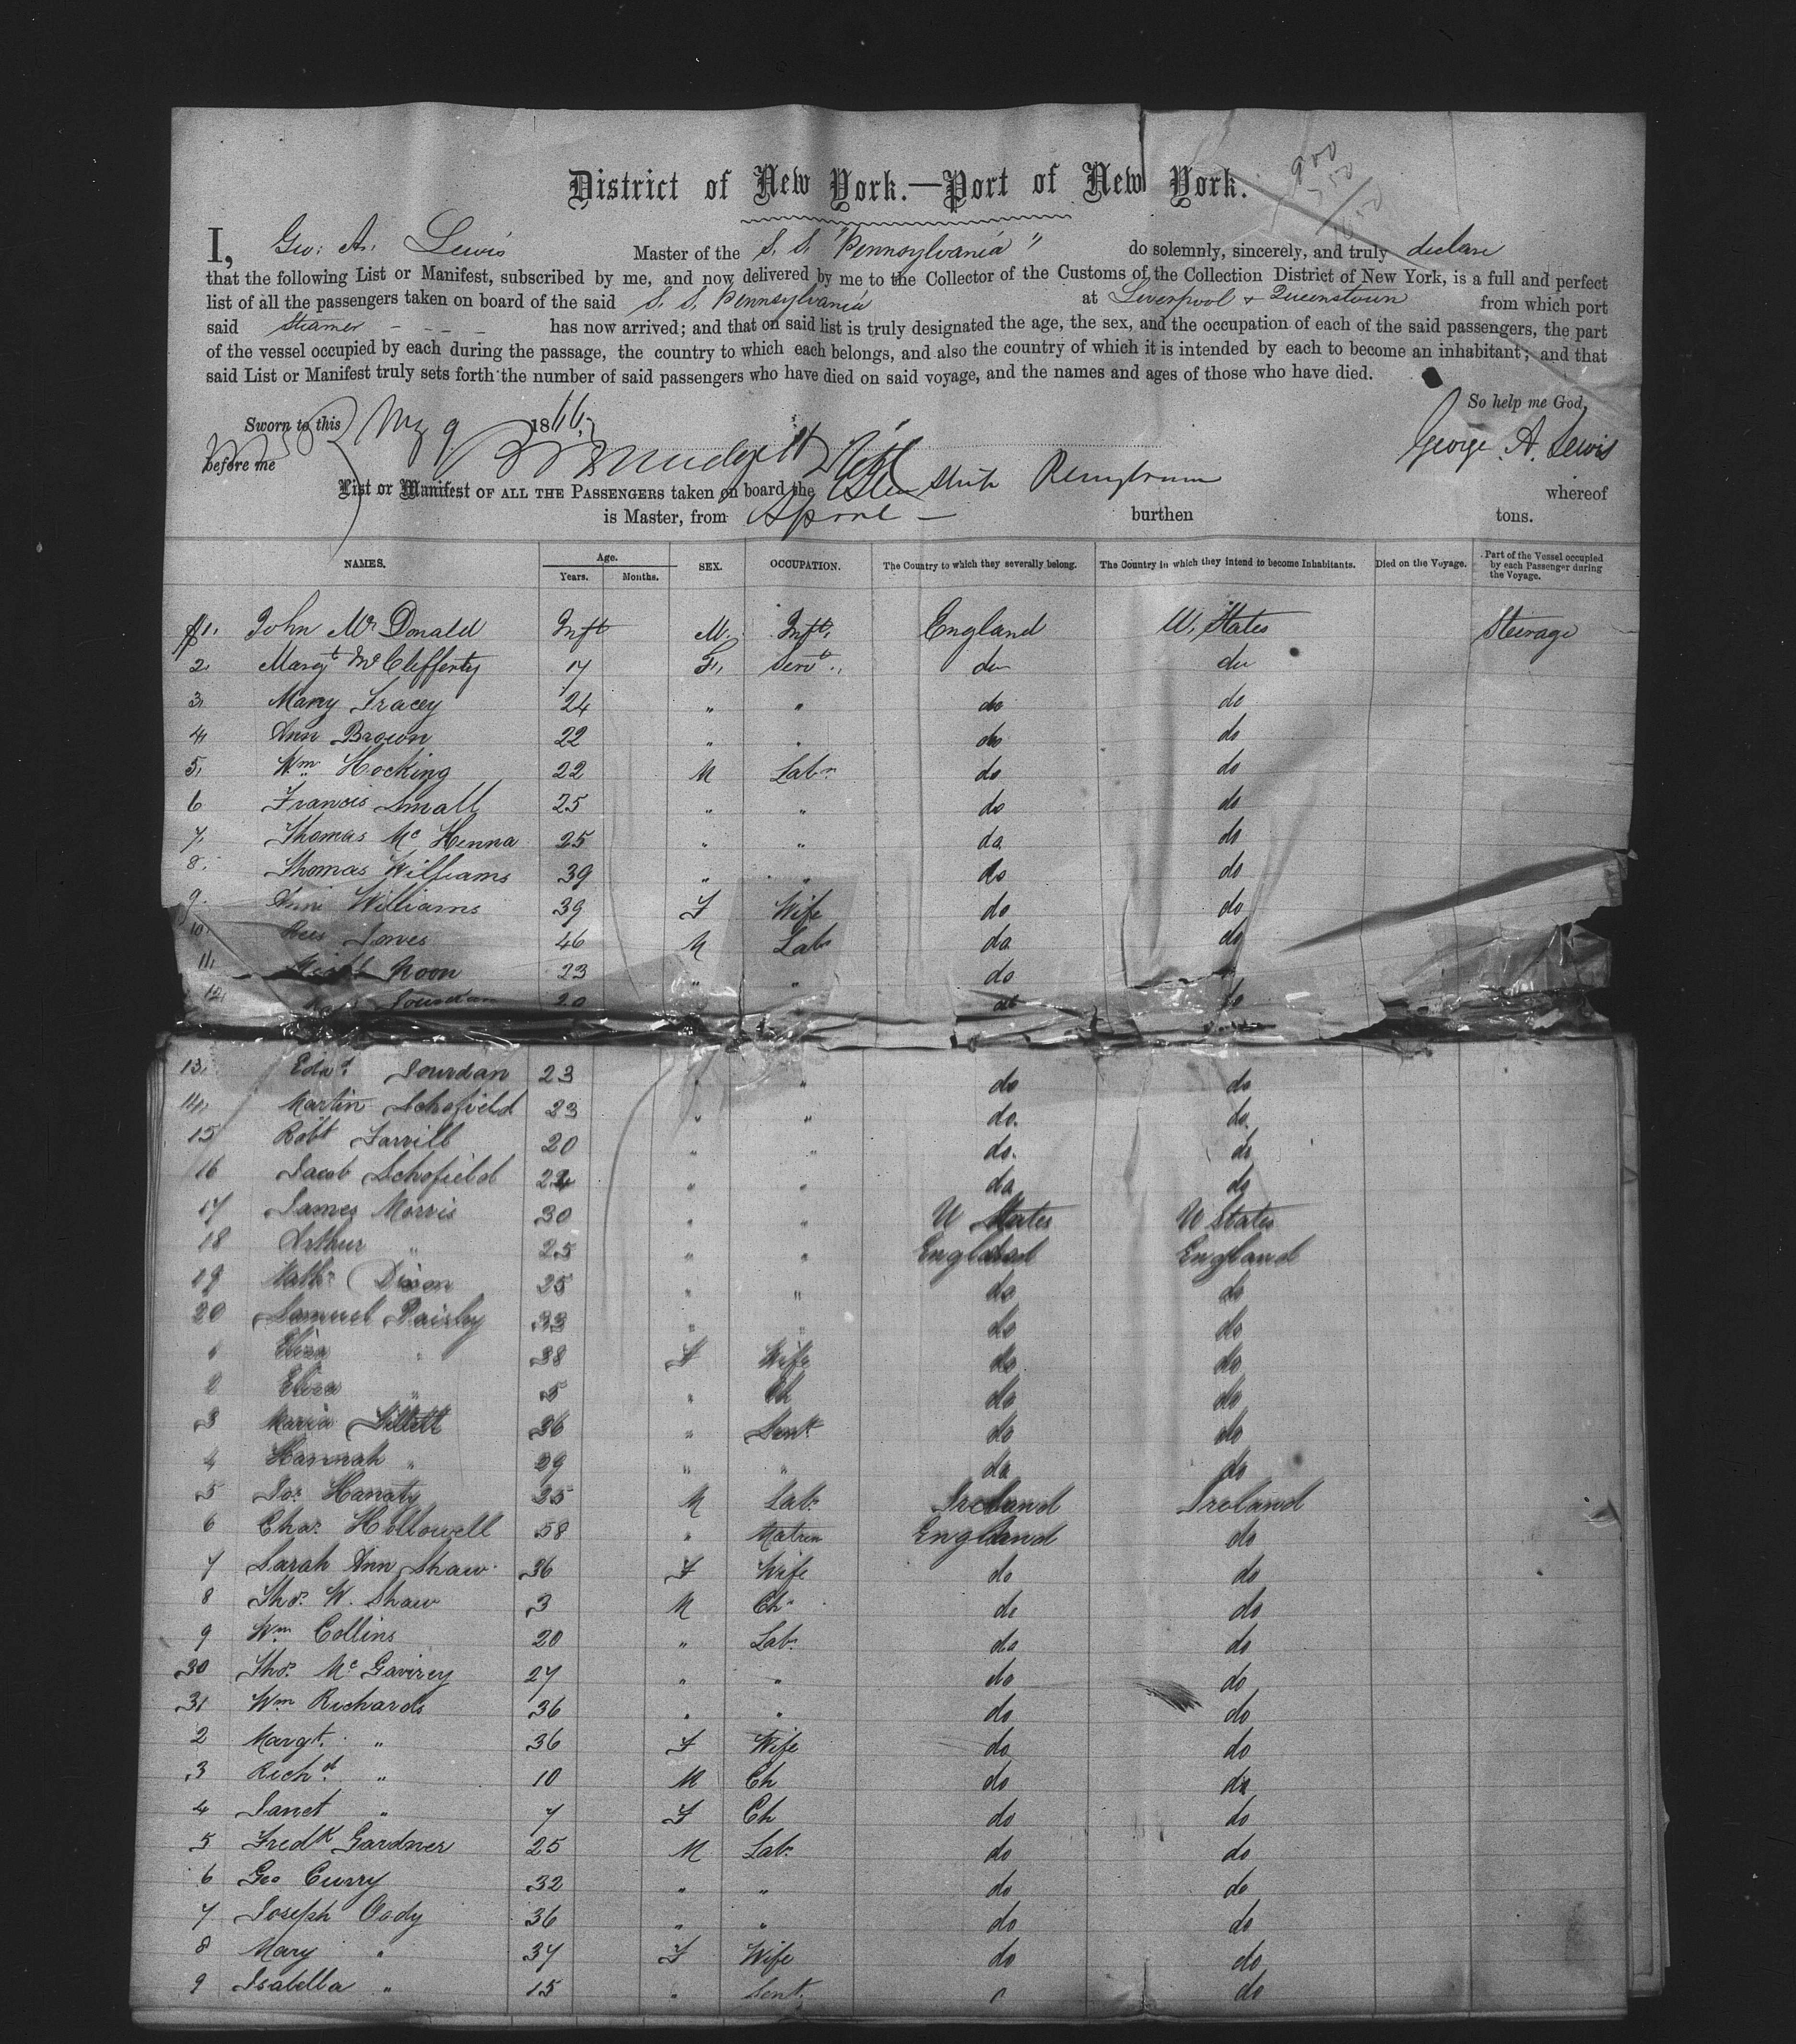 900
District of New York.—Port of New York.
I, Geo: A. Lewis Master of the S. S. "Pennsylvania" do solemnly, sincerely, and truly declare
that the following List or Manifest, subscribed by me, and now delivered by me to the Collector of the Customs of the Collection District of New York, is a full and perfect
list of all the passengers taken on board of the said S. S. Pennsylvania at Liverpool + Queenstown from which port
said Steamer - - - - has now arrived; and that on said list is truly designated the age, the sex, and the occupation of each of the said passengers, the part
of the vessel occupied by each during the passage, the country to which each belongs, and also the country of which it is intended by each to become an inhabitant; and that
said List or Manifest truly sets forth the number of said passengers who have died on said voyage, and the names and ages of those who have died.
So help me God,
Sworn to this May 9 1866 George. A. Lewis
before me
List or Manifest OF ALL THE PASSENGERS taken on board the whereof
is Master, from burthen tons.
NAMES. Age. Years. Months. SEX. OCCUPATION. The Country to which they severally belong. The Country in which they intend to become Inhabitants. Died on the Voyage. Part of the Vessel occupied by each Passenger during the Voyage.
1. John Mc Donald Inft M. Inft. England U. States Steerage
2, Margt McClefferty 17 F. Servt. do do
3, Mary Tracey 24 " " do do
4, Ann Brown 22 " " do do
5, Wm Hocking 22 M Labr do do
6 Francis Small 25 " " do do
7, Thomas Mc Kenna 25 " " do do
8. Thomas Williams 39 " " do do
9. Ann Williams 39 F Wife do do
10. Rees Jones 46 M Labr do do
11, Noon 23 " " do
12, Jourdan 20 do do
13, Edwd. Jourdan 23 " " do do
14, Martin Schofield 23 " " do. do.
15 Robt Farrill 20 " " do. do
16 Jacob Schofield 24 " " do do
17 James Morris 30 " " U States U States
18 Arthur " 25 " " England England
19 Mathr Dixon 25 " " do do
20 Samuel Paisley 33 " " do do
1 Eliza " 38 F Wife do do
2 Eliza " 5 " Ch do do
3 Maria Gillett 36 " Servt do do
4 Hannah " 29 " " do do
5 Jas. Hanaty 35 M Labr Ireland Ireland
6 Chas. Hollowell 58 " England do
7 Sarah Ann Shaw 36 F Wife do do
8 Thos. W. Shaw 3 M Ch. do do
9 Wm Collins 20 " Labr do do
30 Thos. Mc Gavirey 27 " " do do
31 Wm Richards 36 " " do do
2 Margt. " 36 F Wife do do
3 Richd. " 10 M Ch do do
4 Janet " 7 F Ch do do
5 Fredk Gardner 25 M Labr do do
6 Geo Curry 32 " " do do
7 Joseph Oady 36 " " do do
8 Mary " 37 F Wife do do
9 Isabella " 15 " Servt. do